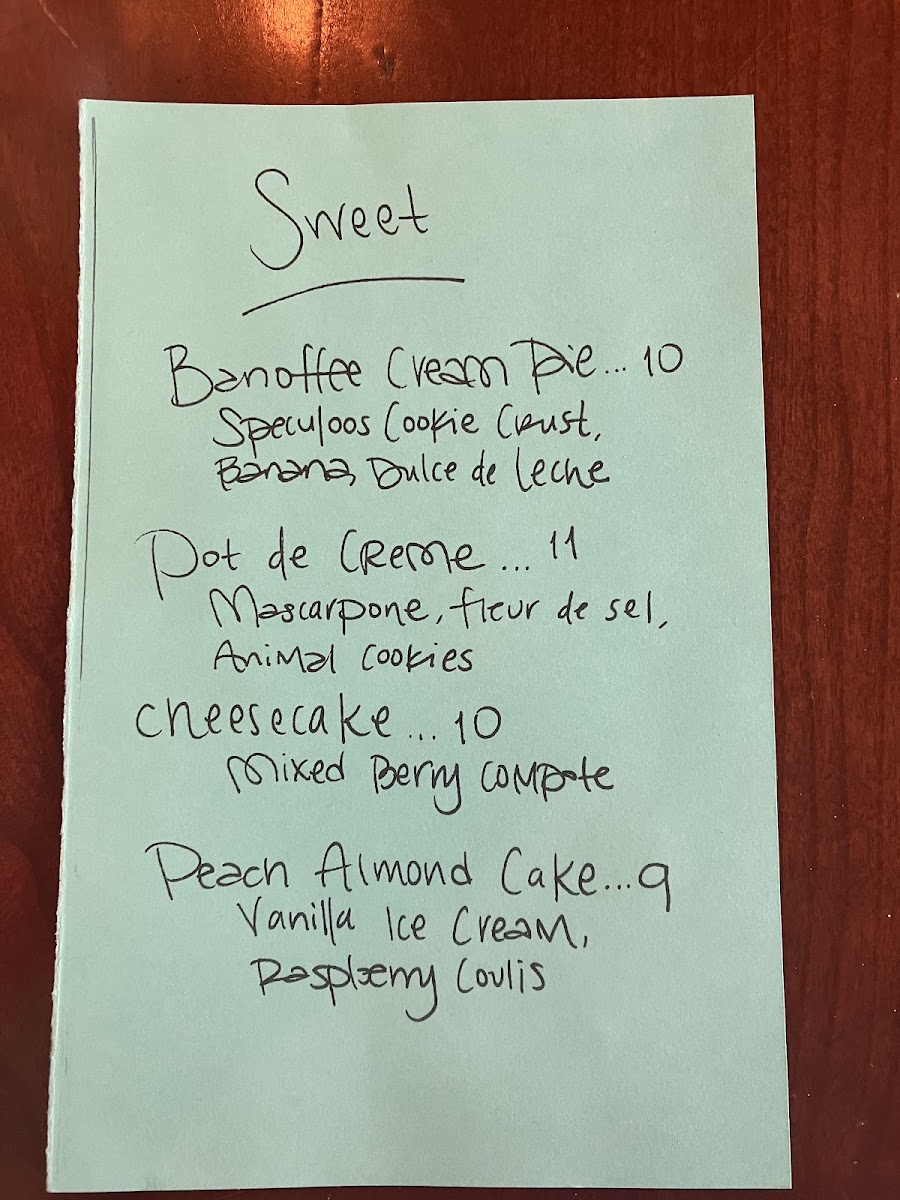 Sweet
Banoffee Cream Pie... 10
Speculoos Cookie Crust,
Banana, Dulce de leche
Pot de Creme ... 11
Mascarpone, fleur de sel,
Animal cookies
cheesecake ... 10
Mixed Berry compote
Peach Almond Cake...9
Vanilla Ice Cream,
Raspberry Coulis